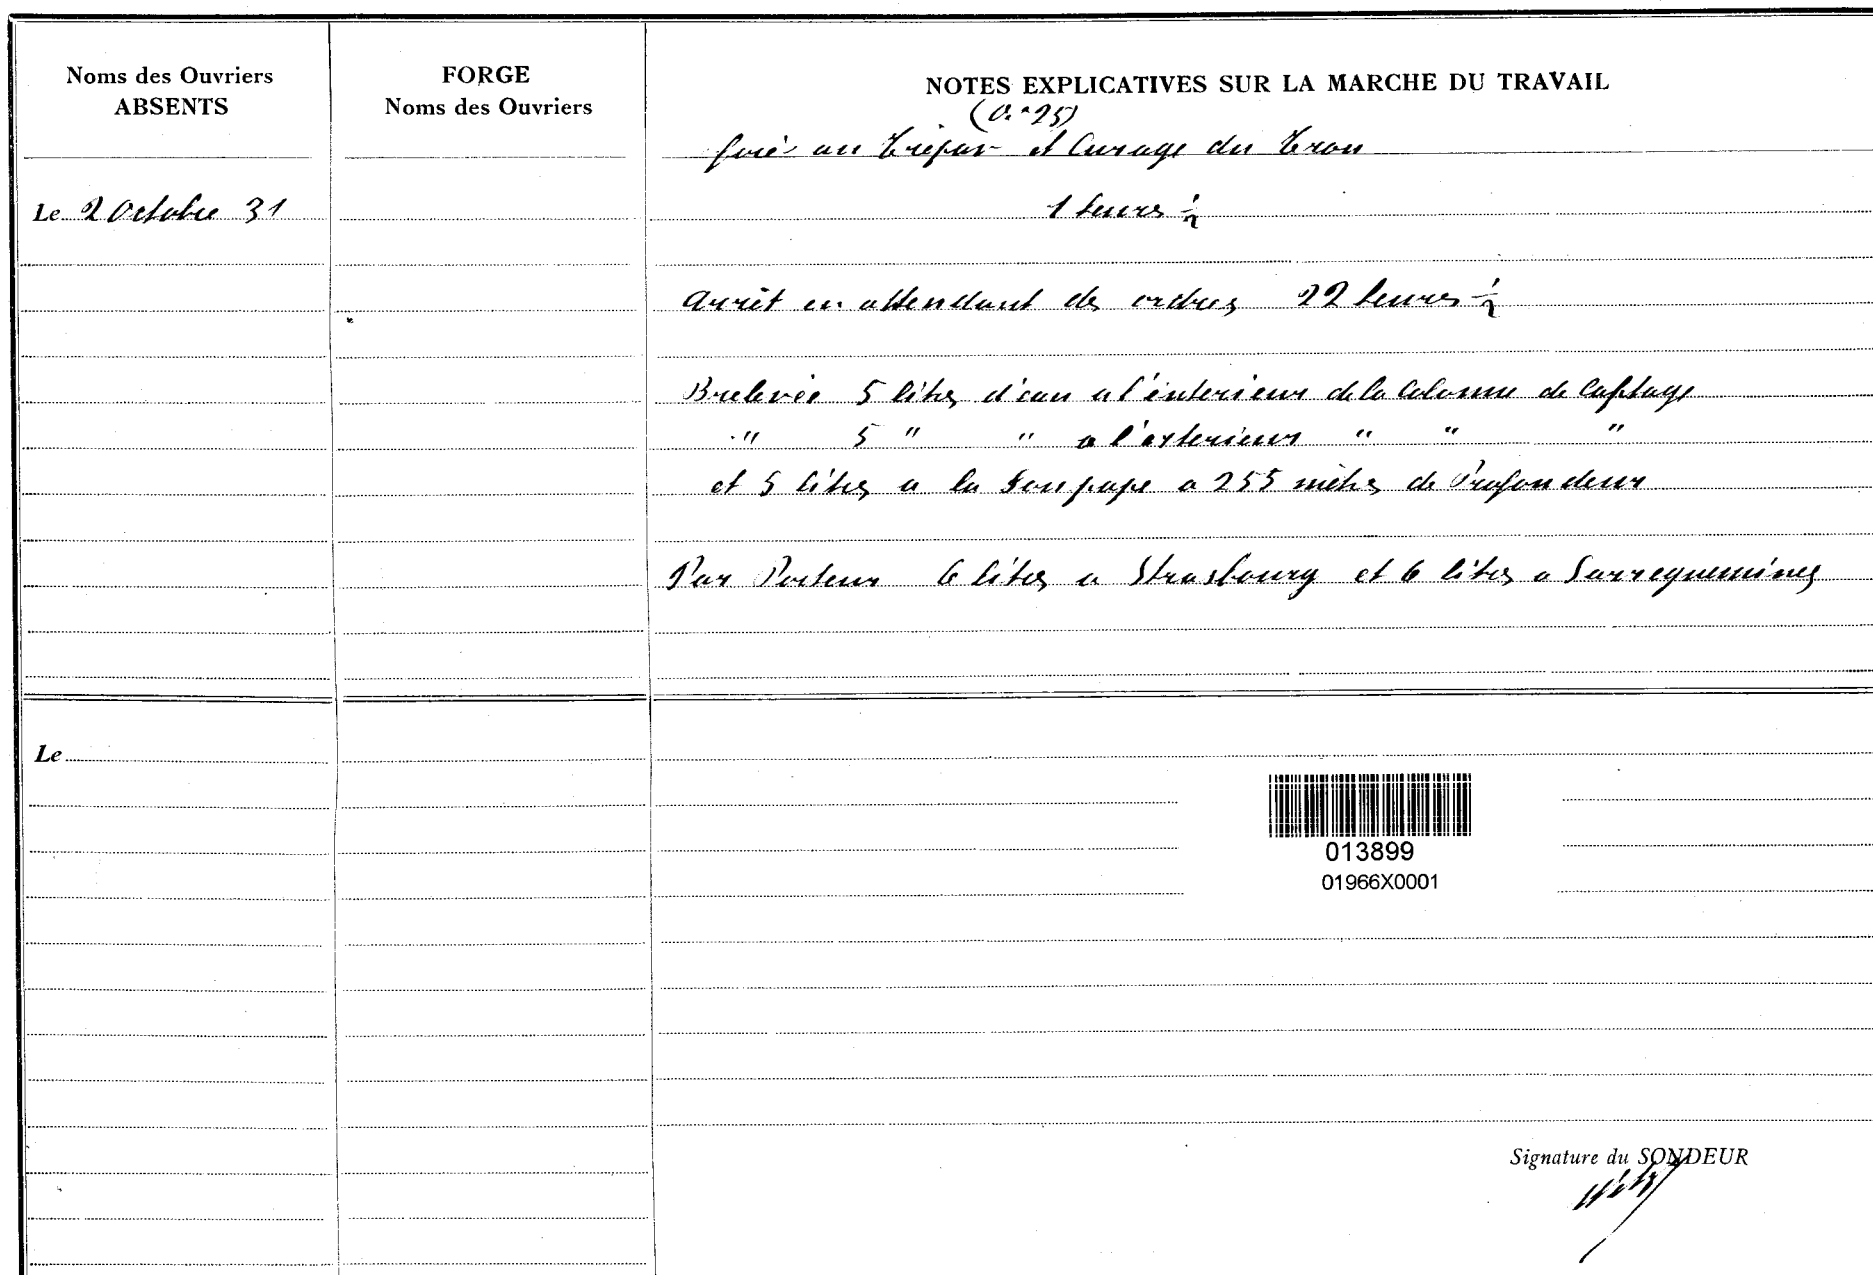 Noms des Ouvriers
ABSENTS
FORGE
Noms des Ouvriers
NOTES EXPLICATIVES SUR LA MARCHE DU TRAVAIL
(0.m25)
foré au Trépan et Curage du Trou
Le 2 Octobre 31
1 heures ½
Arrêt en attendant des ordres 22 heures ½
Prelevée 5 litres d'eau a l'interieur de la Colonne de Captage
" 5 " " a l'exterieur " " "
et 5 litres a la Soupape a 255 mètres de Profondeur
Par Porteur 6 litres a Strasbourg et 6 litres a Sarreguemines
Le
013899
01966X0001
Signature du SONDEUR